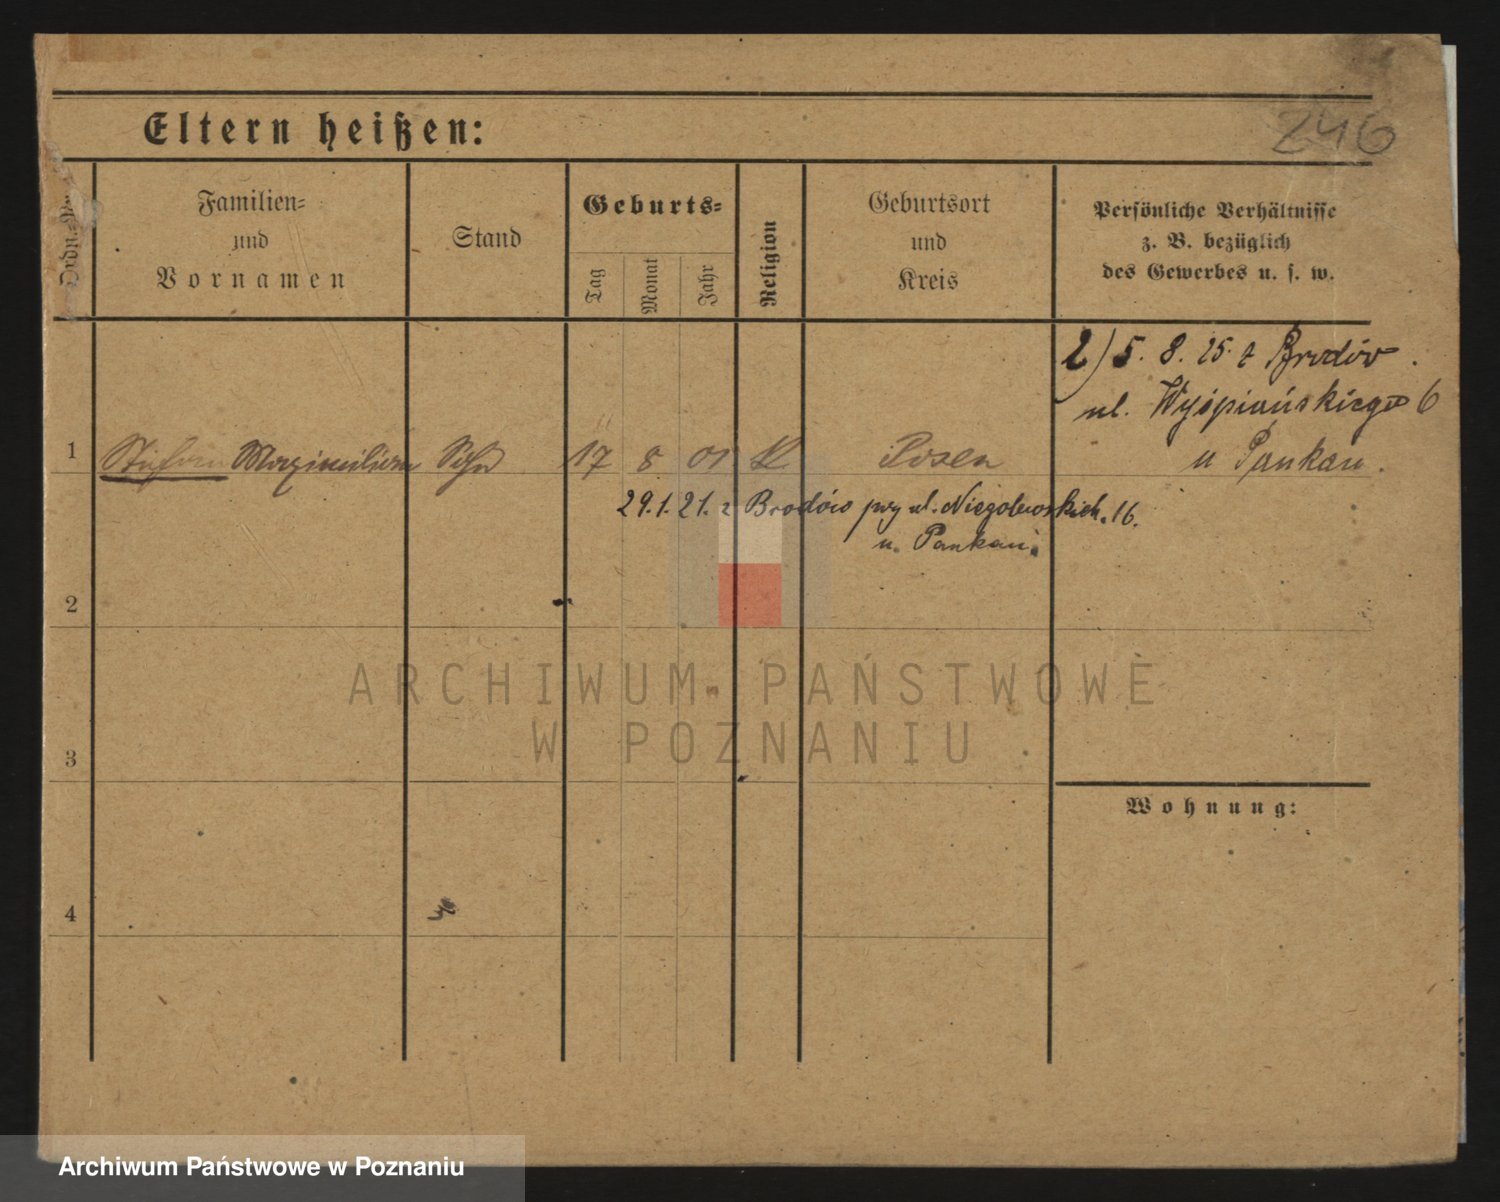 246
Eltern heißen:
Ordn.-Nr.
Familien-
und
Vornamen
Stand
Geburts-
Tag
Monat
Jahr
Religion
Geburtsort
und
Kreis
Persönliche Verhältnisse
z. B. bezüglich
des Gewerbes u. s. w.
2) 5. 8. 25. z Brodów.
ul. Wyśpiańskiego 6
u Pankau.
1 Stefan Maximilian Sohn 17 8 01 K Posen
29.1.21. z Brodów przy ul. Niegolewskich. 16.
u. Pankau.
2
3
Wohnung:
4
ARCHIWUM PAŃSTWOWE
W POZNANIU
Archiwum Państwowe w Poznaniu